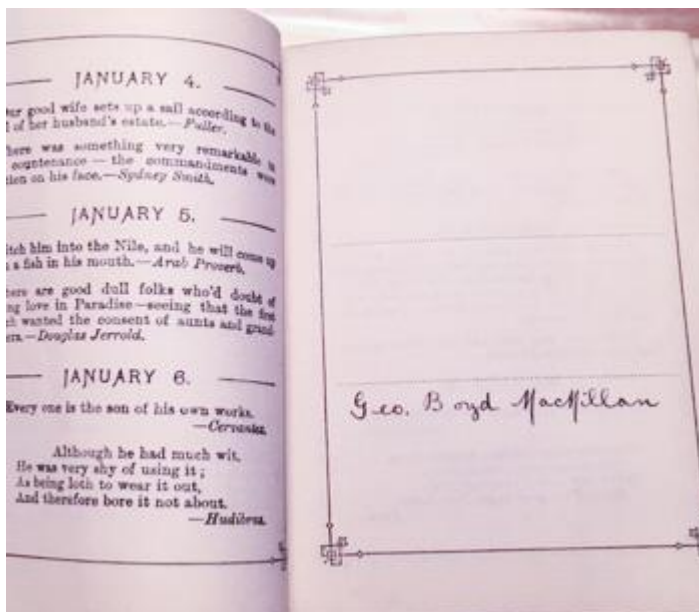 JANUARY 4.
our good wife sets up a sail according to the
of her husband's estate.—Fuller.
here was something very remarkable in
countenance — the commandments were
on his face.—Sydney Smith.
JANUARY 5.
him into the Nile, and he will come up
a fish in his mouth.—Arab Proverb.
here are good dull folks who'd doubt of
love in Paradise—seeing that the first
wanted the consent of aunts and grand-
—Douglas Jerrold.
JANUARY 6.
Every one is the son of his own works.
—Cervantes.
Although he had much wit,
He was very shy of using it;
As being loth to wear it out,
And therefore bore it not about.
—Hudibras.
Geo. Boyd MacMillan